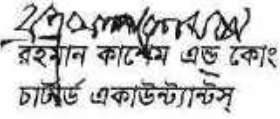 রহমান কাশেম এন্ড কোং
চাটার্ড একাউন্ট্যান্টস্